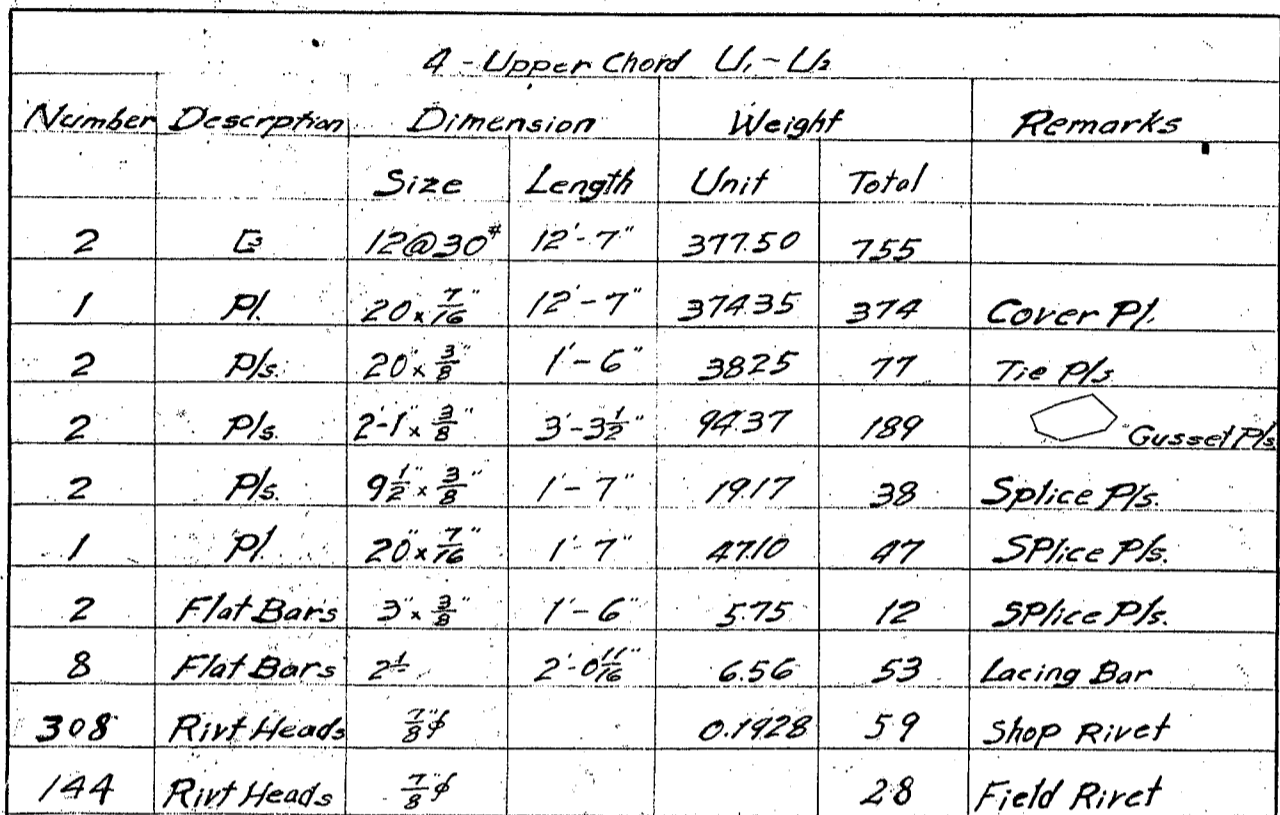 4 - Upper Chord U₁ - U₂
Number Descrption Dimension Weight Remarks
Size Length Unit Total
2 12@30# 12'-7" 377.50 755
1 Pl. 20 x 7/16" 12'-7" 374.35 374 Cover Pl.
2 Pls. 20" x 3/8" 1'-6" 38.25 77 Tie Pls
2 Pls. 2'-1" x 3/8" 3'-3 1/2" 94.37 189 Gusset Pls
2 Pls. 9 1/2" x 3/8" 1'-7" 19.17 38 Splice Pls.
1 Pl. 20" x 7/16" 1'-7" 47.10 47 SPlice Pls.
2 Flat Bars 3" x 3/8" 1'-6" 5.75 12 SPlice Pls.
8 Flat Bars 2'-0 11/16" 6.56 53 Lacing Bar
308 Rivt Heads 7/8"φ 0.1928 59 Shop Rivet
144 Rivt Heads 7/8"φ 28 Field Rivet